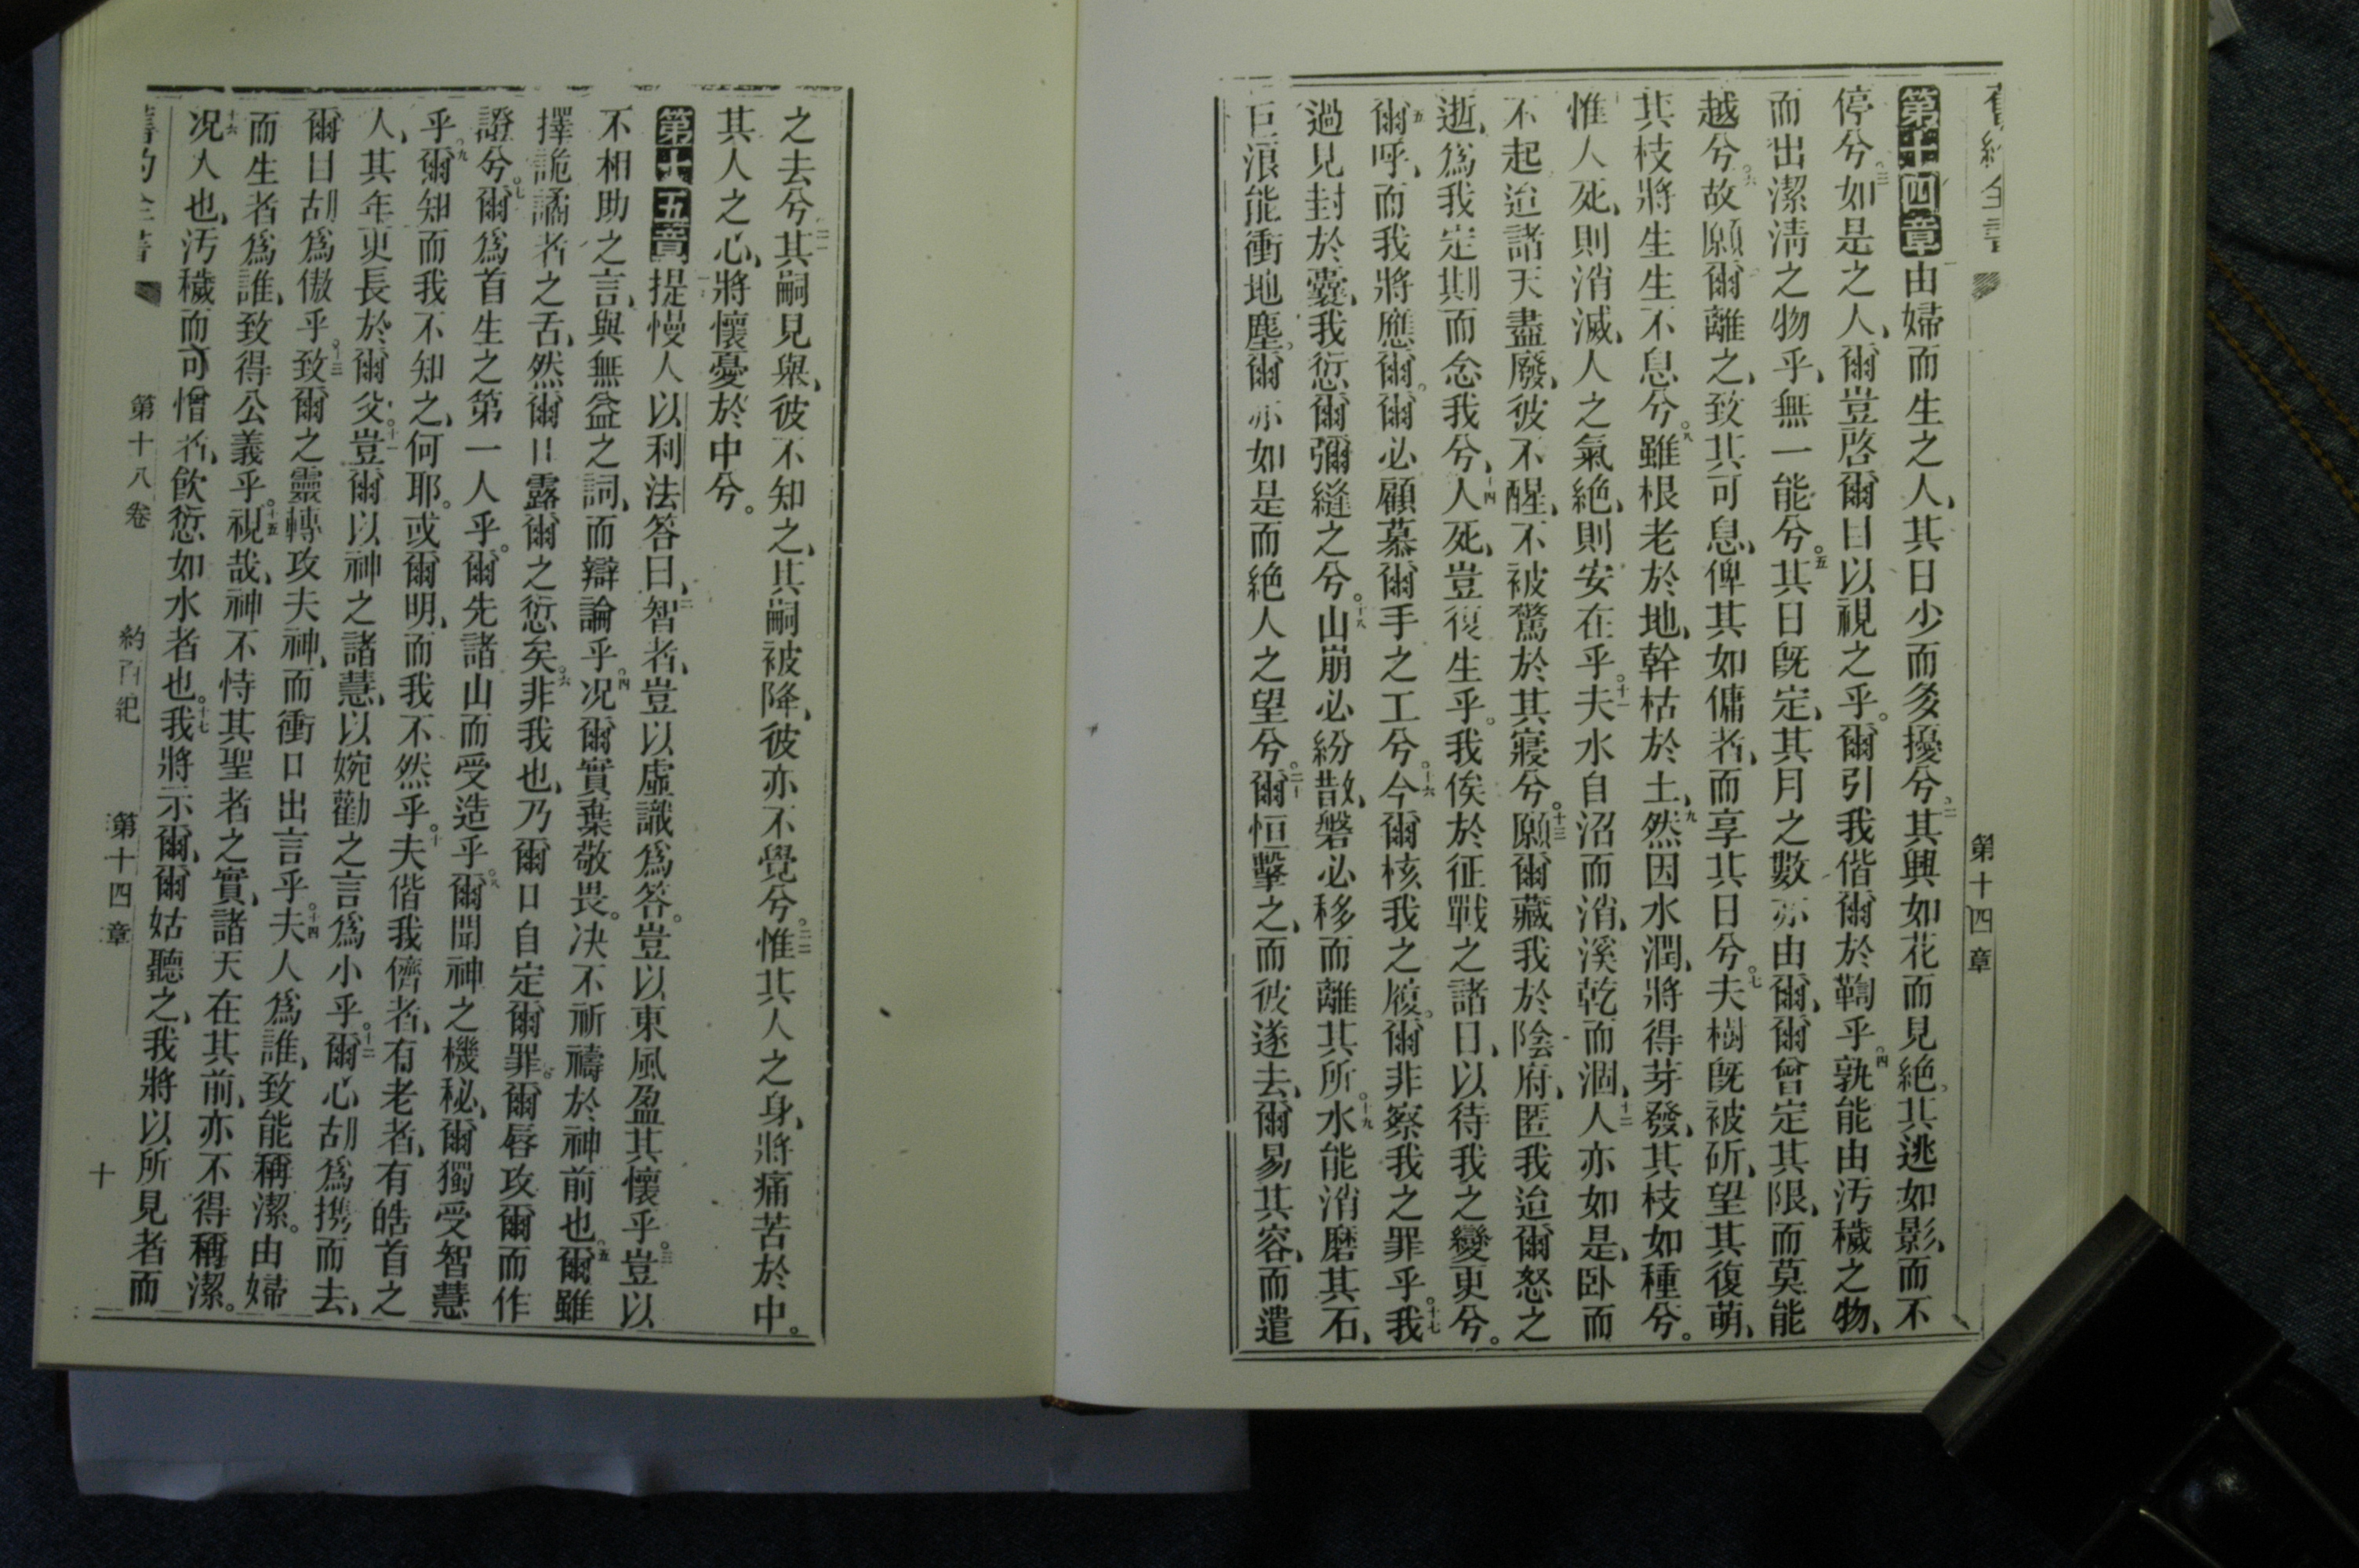 舊約全書
第十四章
第十四章由婦而生之人、其日少而多擾兮。二其興如花而見絕。其逃如影、而不
停兮。三如是之人、爾豈啓爾目以視之乎。爾引我偕爾於鞫乎。四孰能由污穢之物、
而出潔淸之物乎、無一能兮。五其日旣定、其月之數亦由爾、爾曾定其限、而莫能
越兮。六故願爾離之、致其可息、俾其如傭者、而享其日兮。七夫樹旣被斫、望其復萌、
其枝將生生不息兮。八雖根老於地、幹枯於土、九然因水潤、將得芽發、其枝如種兮。
惟人死、則消滅、人之氣絕、則安在乎。十一夫水自沼而消、溪乾而涸、十二人亦如是、卧而
不起、迨諸天盡廢、彼不醒、不被驚於其寢兮。十三願爾藏我於陰府、匿我迨爾怒之
逝、爲我定期而念我兮、十四人死、豈復生乎。我俟於征戰之諸日、以待我之變更兮。
十五爾呼、而我將應爾。爾必顧慕爾手之工兮。十六今爾核我之履。爾非察我之罪乎。十七我
過見封於囊、我愆爾彌縫之兮。十八山崩必紛散、磐必移而離其所。十九水能消磨其石、
巨浪能衝地塵。爾亦如是而絕人之望兮。二十爾恒擊之、而彼遂去、爾易其容、而遣
之去兮。二一其嗣見舉、彼不知之、其嗣被降、彼亦不覺兮。二二惟其人之身、將痛苦於中。
其人之心、將懷憂於中兮。
第十五章一提慢人以利法答曰、二智者、豈以虛識爲答。豈以東風盈其懷乎。三豈以
不相助之言、與無益之詞、而辯論乎。四况爾實棄敬畏。决不祈禱於神前也。五爾雖
擇詭譎者之舌、然爾口露爾之愆矣。六非我也、乃爾口自定爾罪。爾唇攻爾而作
證兮。七爾爲首生之第一人乎。爾先諸山而受造乎。八爾聞神之機秘、爾獨受智慧
乎。九爾知而我不知之、何耶。或爾明、而我不然乎。十夫偕我儕者、有老者、有皓首之
人、其年更長於爾父。十一豈爾以神之諸慧、以婉勸之言爲小乎。十二爾心胡爲携而去、
爾目胡爲傲乎。十三致爾之靈轉攻夫神、而衝口出言乎。十四夫人爲誰、致能稱潔。由婦
而生者爲誰、致得公義乎。十五視哉、神不恃其聖者之實、諸天在其前、亦不得稱潔。
十六况人也、污穢而可憎者、飮愆如水者也。十七我將示爾、爾姑聽之、我將以所見者而
舊約全書
第十八卷
約百紀
第十四章
十